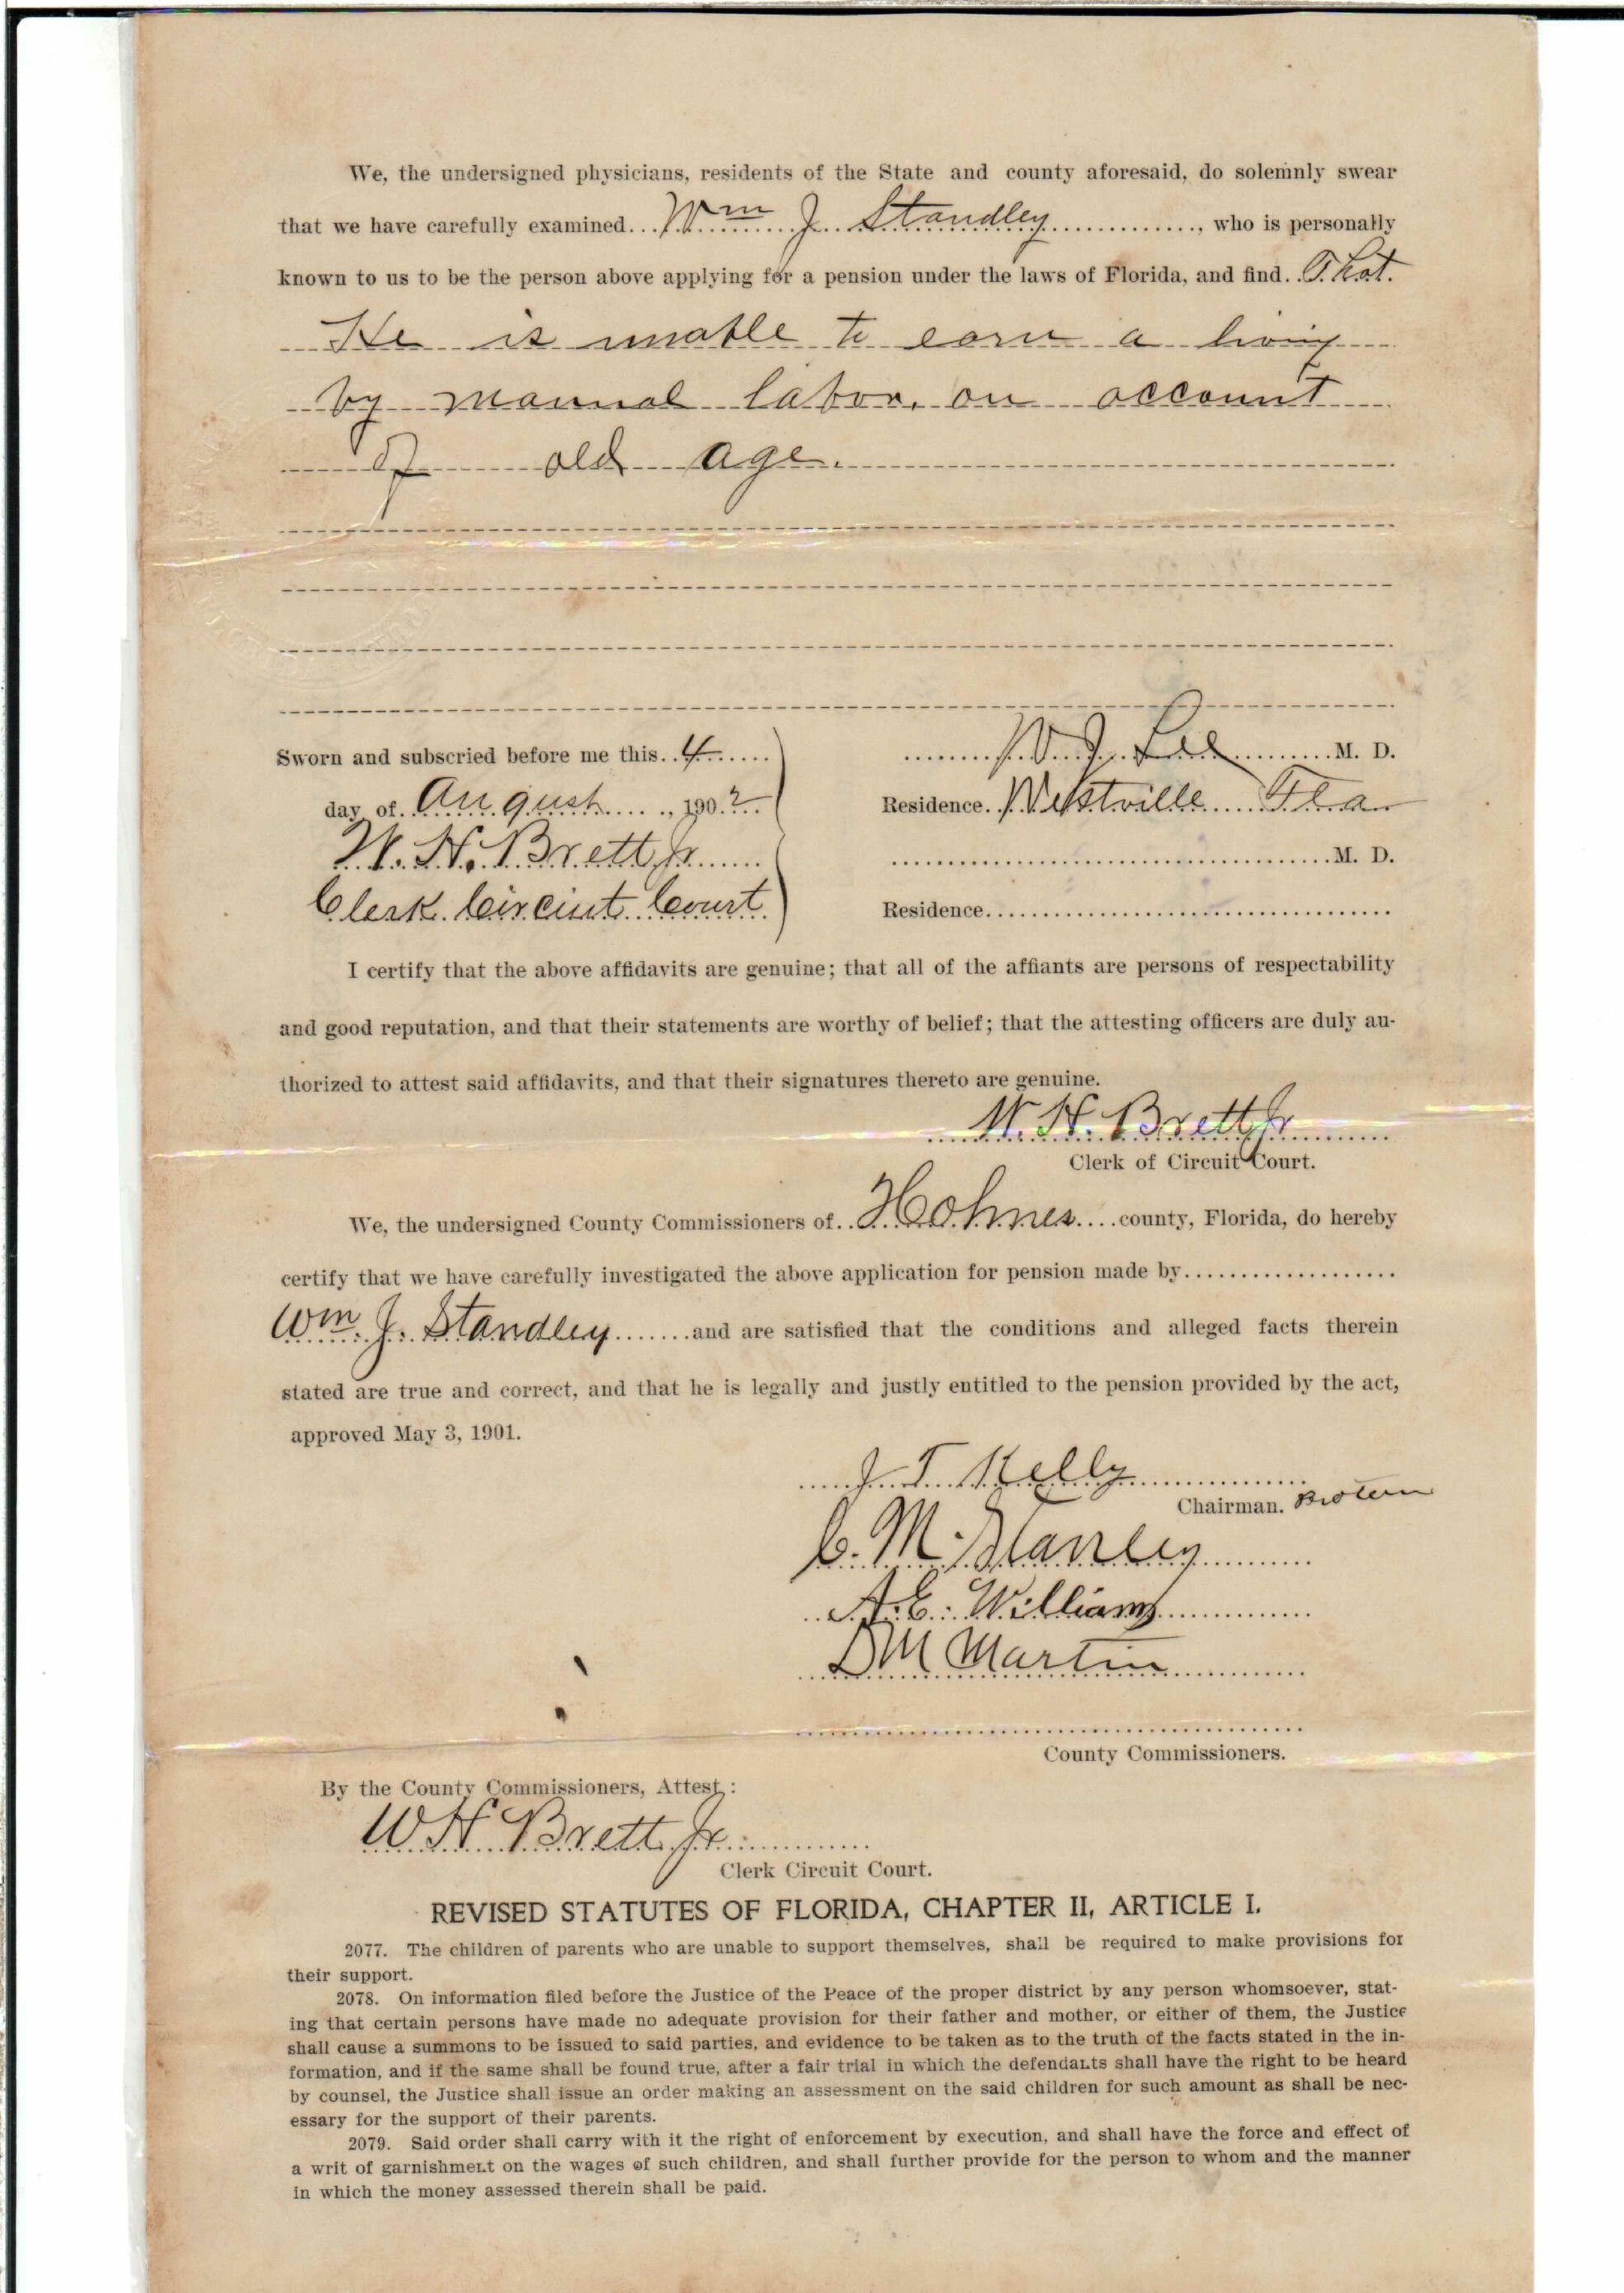 We, the undersigned physicians, residents of the State and county aforesaid, do solemnly swear
that we have carefully examined... Wm J Standley ............, who is personally
known to us to be the person above applying for a pension under the laws of Florida, and find.. That.
He is unable to earn a living
by manual labor, on account
of old age.
Sworn and subscried before me this.. 4 ......
day of. August ....., 1902..
W. H. Brett Jr ......
Clerk Circuit Court.
....... W. J. Lee ......... M. D.
Residence. Westville .... Fla.
.................................. M. D.
Residence..................................
I certify that the above affidavits are genuine; that all of the affiants are persons of respectability
and good reputation, and that their statements are worthy of belief; that the attesting officers are duly au-
thorized to attest said affidavits, and that their signatures thereto are genuine.
W. H. Brett Jr
Clerk of Circuit Court.
We, the undersigned County Commissioners of.. Holmes.... county, Florida, do hereby
certify that we have carefully investigated the above application for pension made by..................
Wm. J. Standley .......and are satisfied that the conditions and alleged facts therein
stated are true and correct, and that he is legally and justly entitled to the pension provided by the act,
approved May 3, 1901.
J. T. Kelly
Chairman. Protem
C. M. Stanley
A. E. Williams
D M Martin
County Commissioners.
By the County Commissioners, Attest:
W H Brett, Jr.
Clerk Circuit Court.
REVISED STATUTES OF FLORIDA, CHAPTER II, ARTICLE I.
2077. The children of parents who are unable to support themselves, shall be required to make provisions for
their support.
2078. On information filed before the Justice of the Peace of the proper district by any person whomsoever, stat-
ing that certain persons have made no adequate provision for their father and mother, or either of them, the Justice
shall cause a summons to be issued to said parties, and evidence to be taken as to the truth of the facts stated in the in-
formation, and if the same shall be found true, after a fair trial in which the defendants shall have the right to be heard
by counsel, the Justice shall issue an order making an assessment on the said children for such amount as shall be nec-
essary for the support of their parents.
2079. Said order shall carry with it the right of enforcement by execution, and shall have the force and effect of
a writ of garnishment on the wages of such children, and shall further provide for the person to whom and the manner
in which the money assessed therein shall be paid.